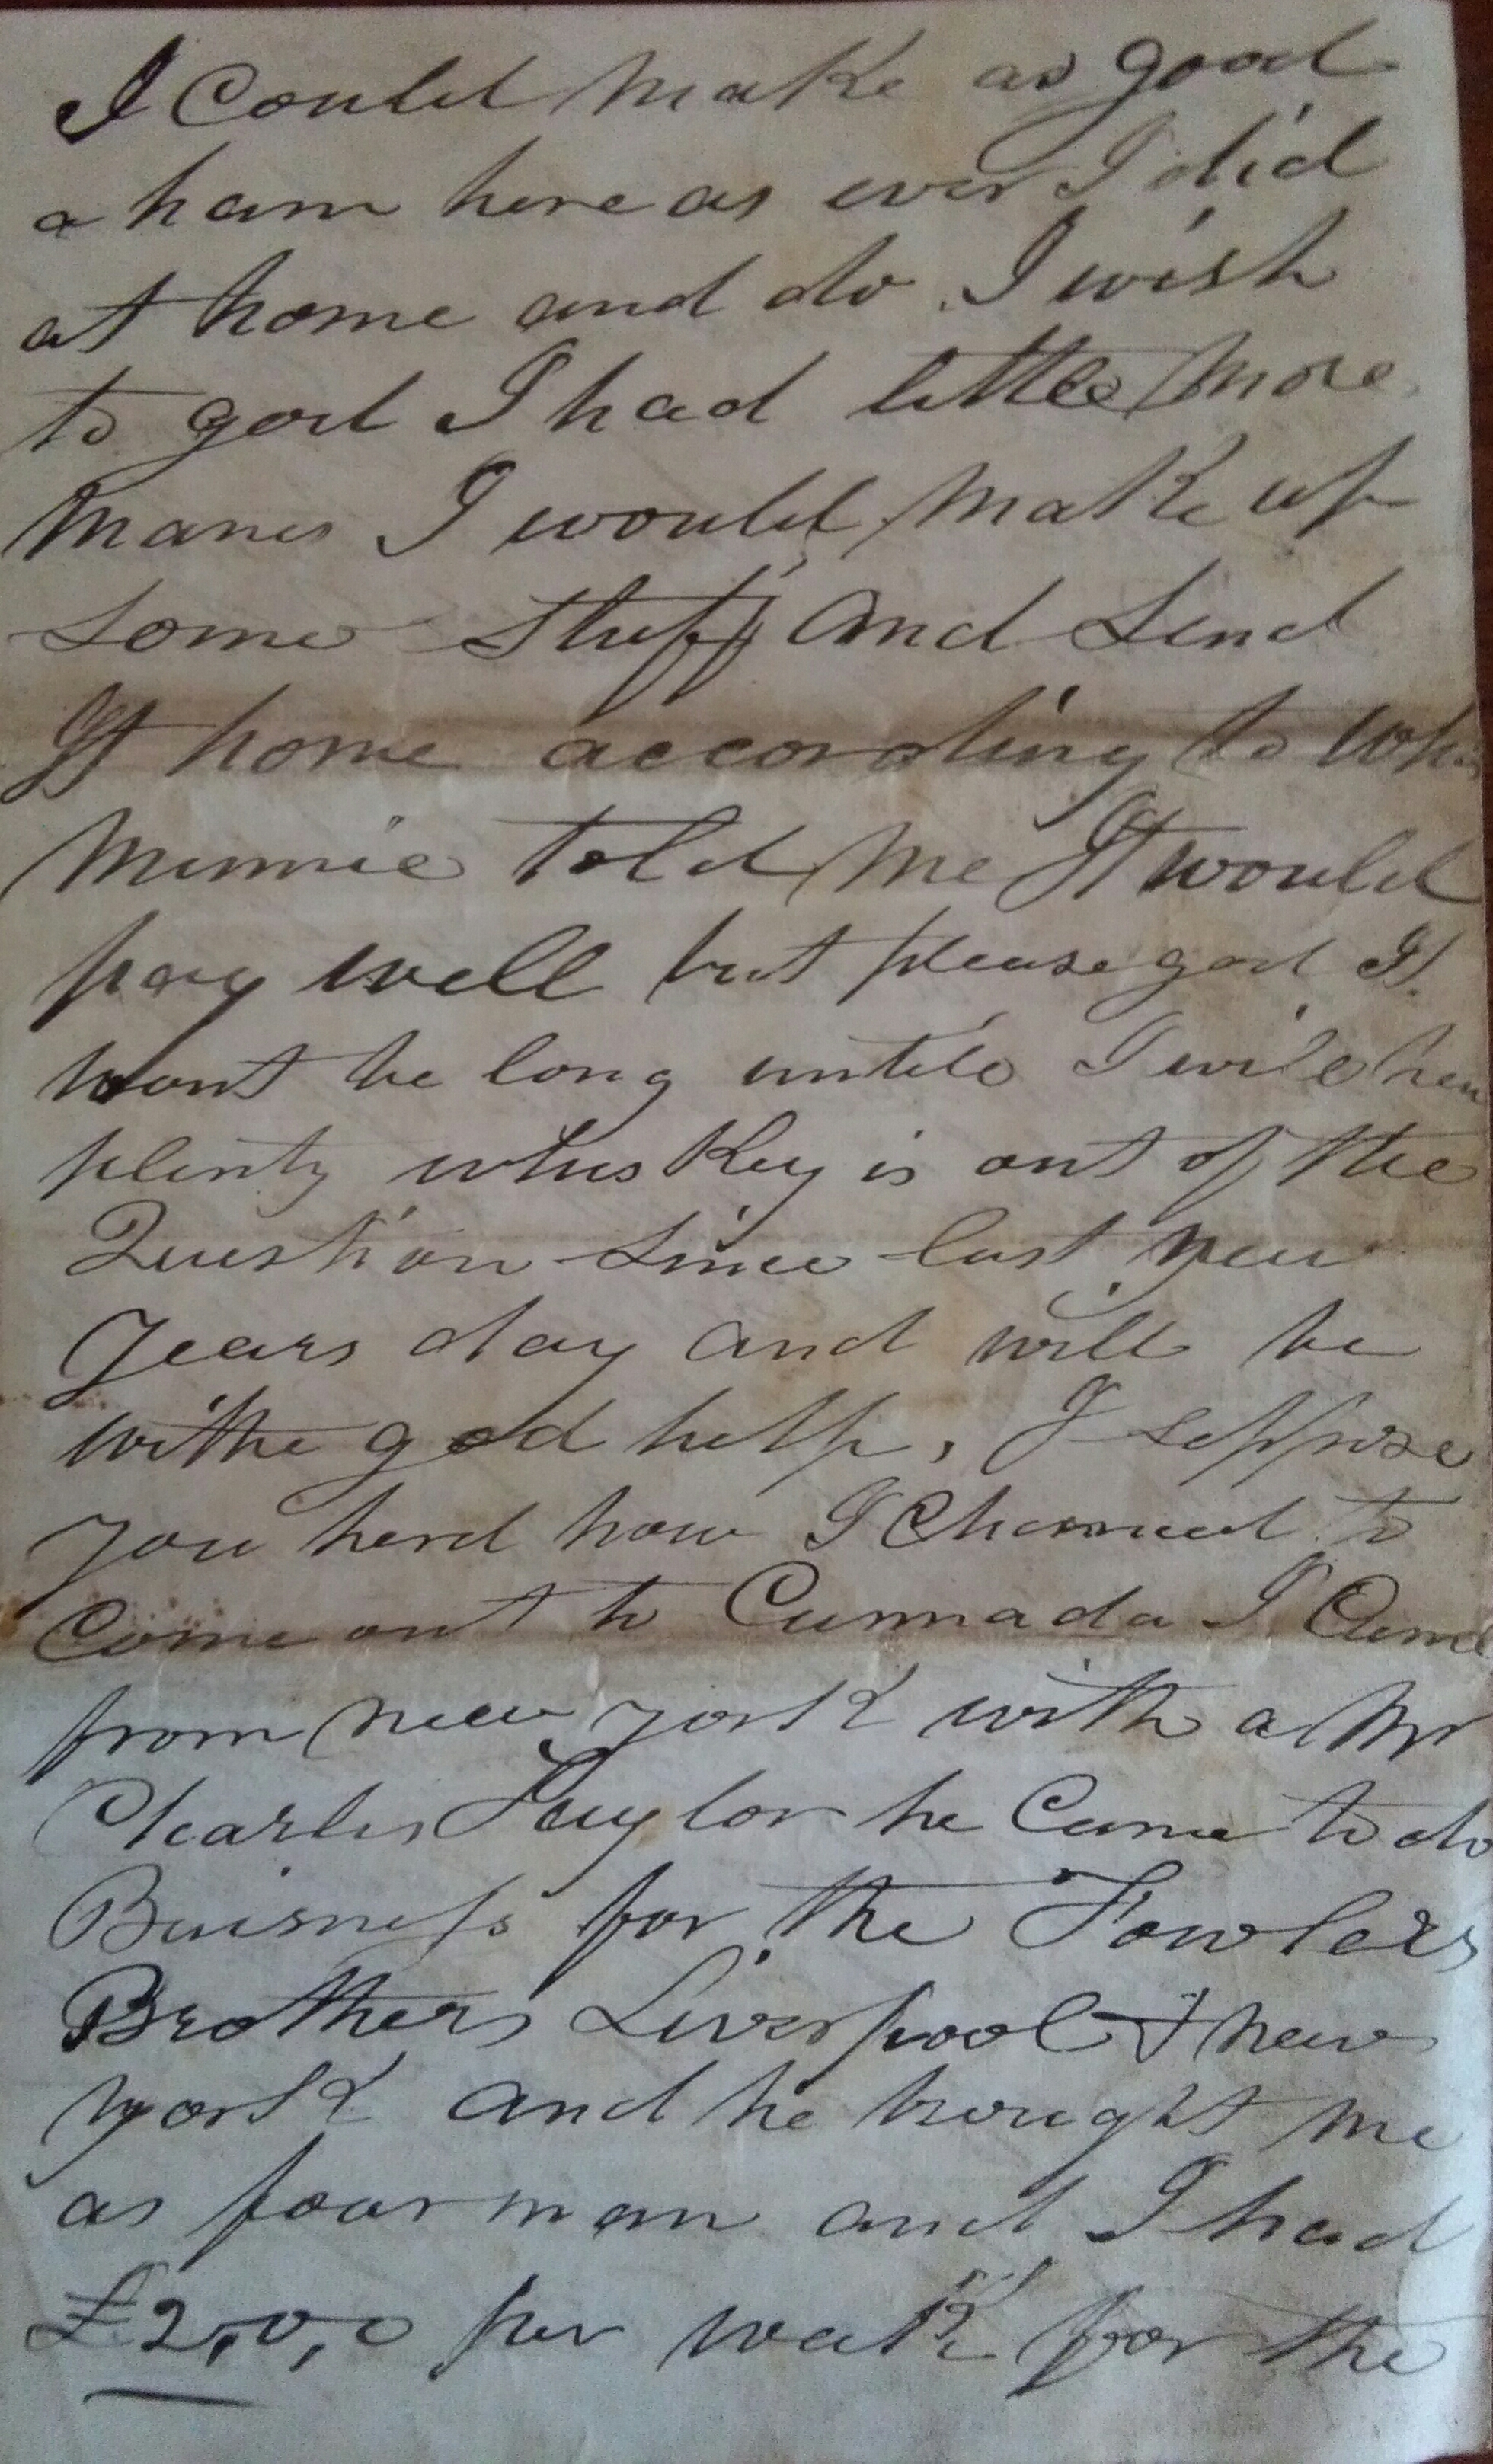 I Could Make as good
a ham here as ever I did
at home and do I wish
to god I had little More
Manes I would Make up
some stuff and send
It home according to
Minnie told Me It would
pay well but please god It
wont be long untile I will
plenty whisKey is out of the
Question since last new
years day and will be
withe god help, I suppose
you herd how I Chanced to
Come out to Cannada I Came
from new york with a Mr
Charles Taylor he Came to do
Buisness for the Fowlers
Brothers Liverpool & new
york and he brought me
as fourman and I had
£2,0,0 per weak for the